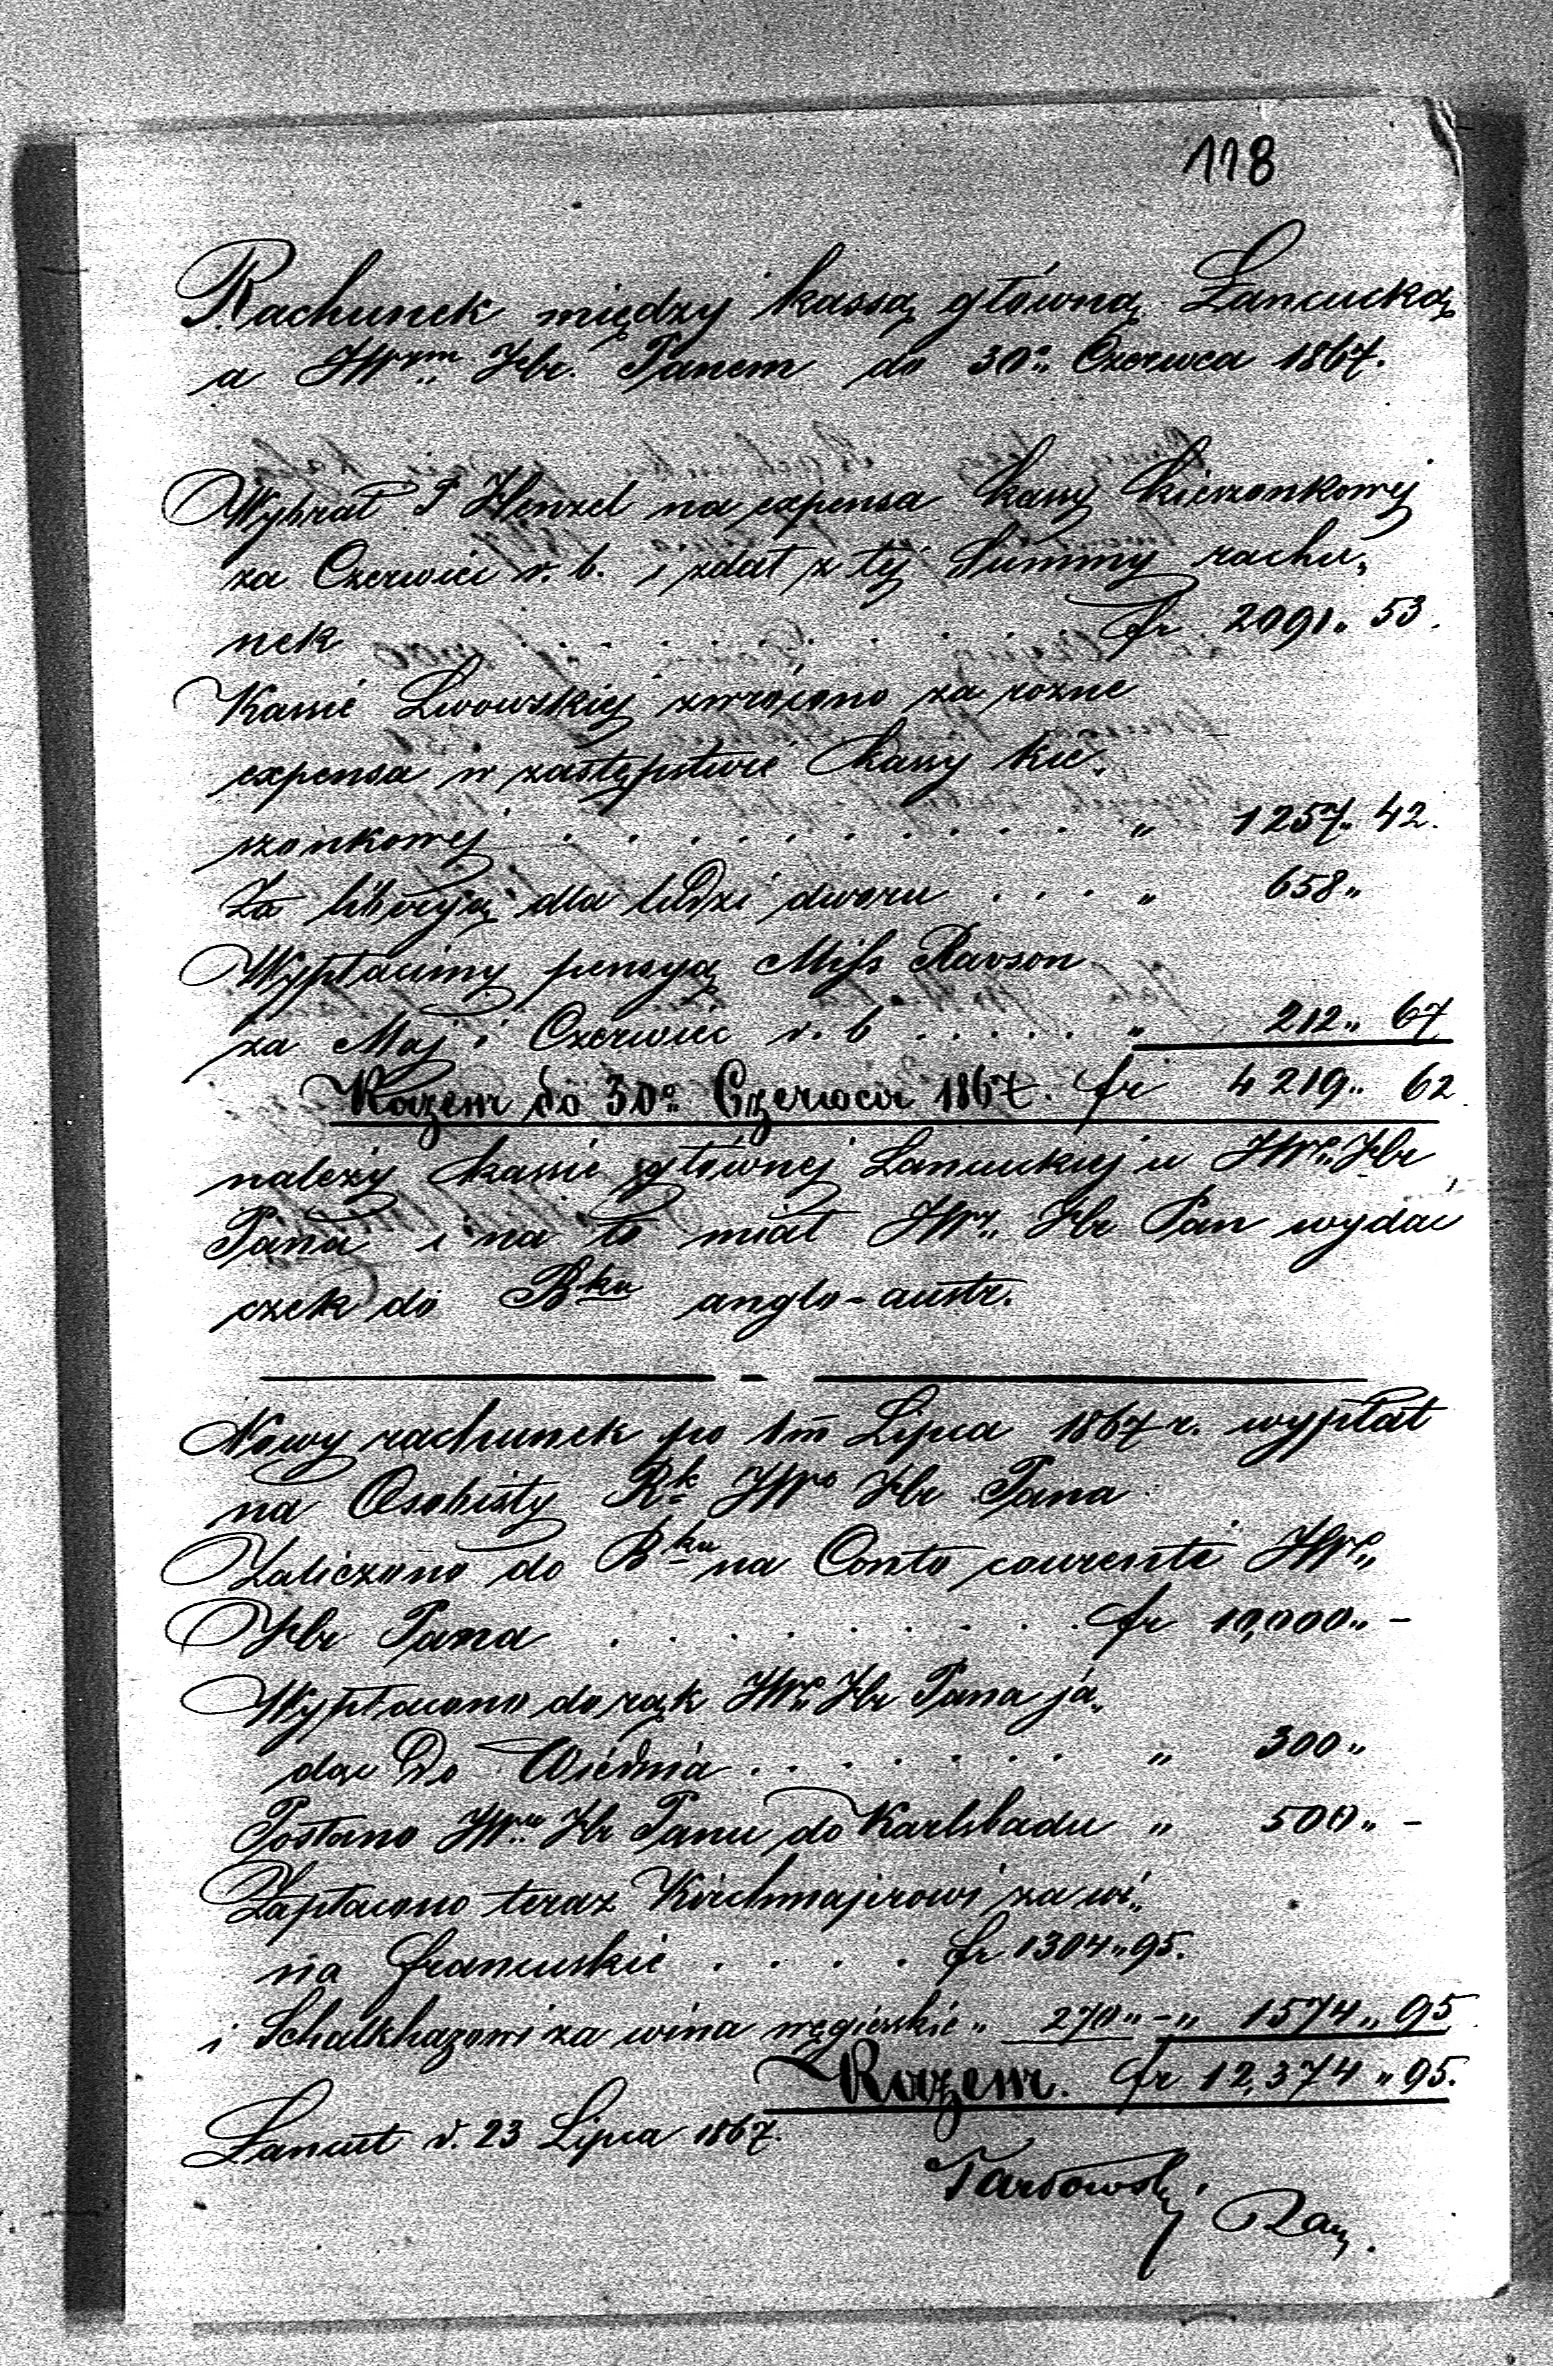 118
Rachunek między kassą główną Łancucką
a JWym Hr. Panem do 30o Czerwca 1867.
Wybrał P Henzel na expensa kassy kieszonkowej
za Czerwiec r. b. i zdał z tej Summy rachu„
nek . . . . . . . . fr 2091„ 53.
Kassie Lwowskiej zwrócono za rozne
expensa w zastępstwie kassy kie„
szonkowej . . . . . . . . . „ 1257„ 42.
Za liberyją dla ludzi dworu . . . „ 658„
Wypłacimy pensyą Miss Ravson
za Maj i Czerwiec r. b . . . . . „ 212„ 67
Razem do 30o Czerwca 1867. fr 4219„ 62.
należy kassie głównej Lancuckiej u JWo Hr
Pana i na to miał JW„ Hr Pan wydać
czek do Bku anglo-austr.
Nowy rachunek po 1m Lipca 1867 r. wypłat
na Osobisty Rk JWo Hr Pana
Zaliczono do Bku na Conto courente JWo„
Hr Pana . . . . . . . . . fr 10,000„ -
Wypłacono do rąk JWo Hr Pana ja„
dąc Do Wiednia . . . . . . . „ 300„
Posłano JWu Hr Panu do Karlsbadu „ 500„ -
Zapłacono teraz Kirchmajerowi za wi„
na francuskie . . . . fr 1304„95.
i Schalkhazowi za wina węgierskie „ 270„ - „ 1574„ 95
Razem. fr 12,374„95.
Lancut d. 23 Lipca 1867.
Tarłowski